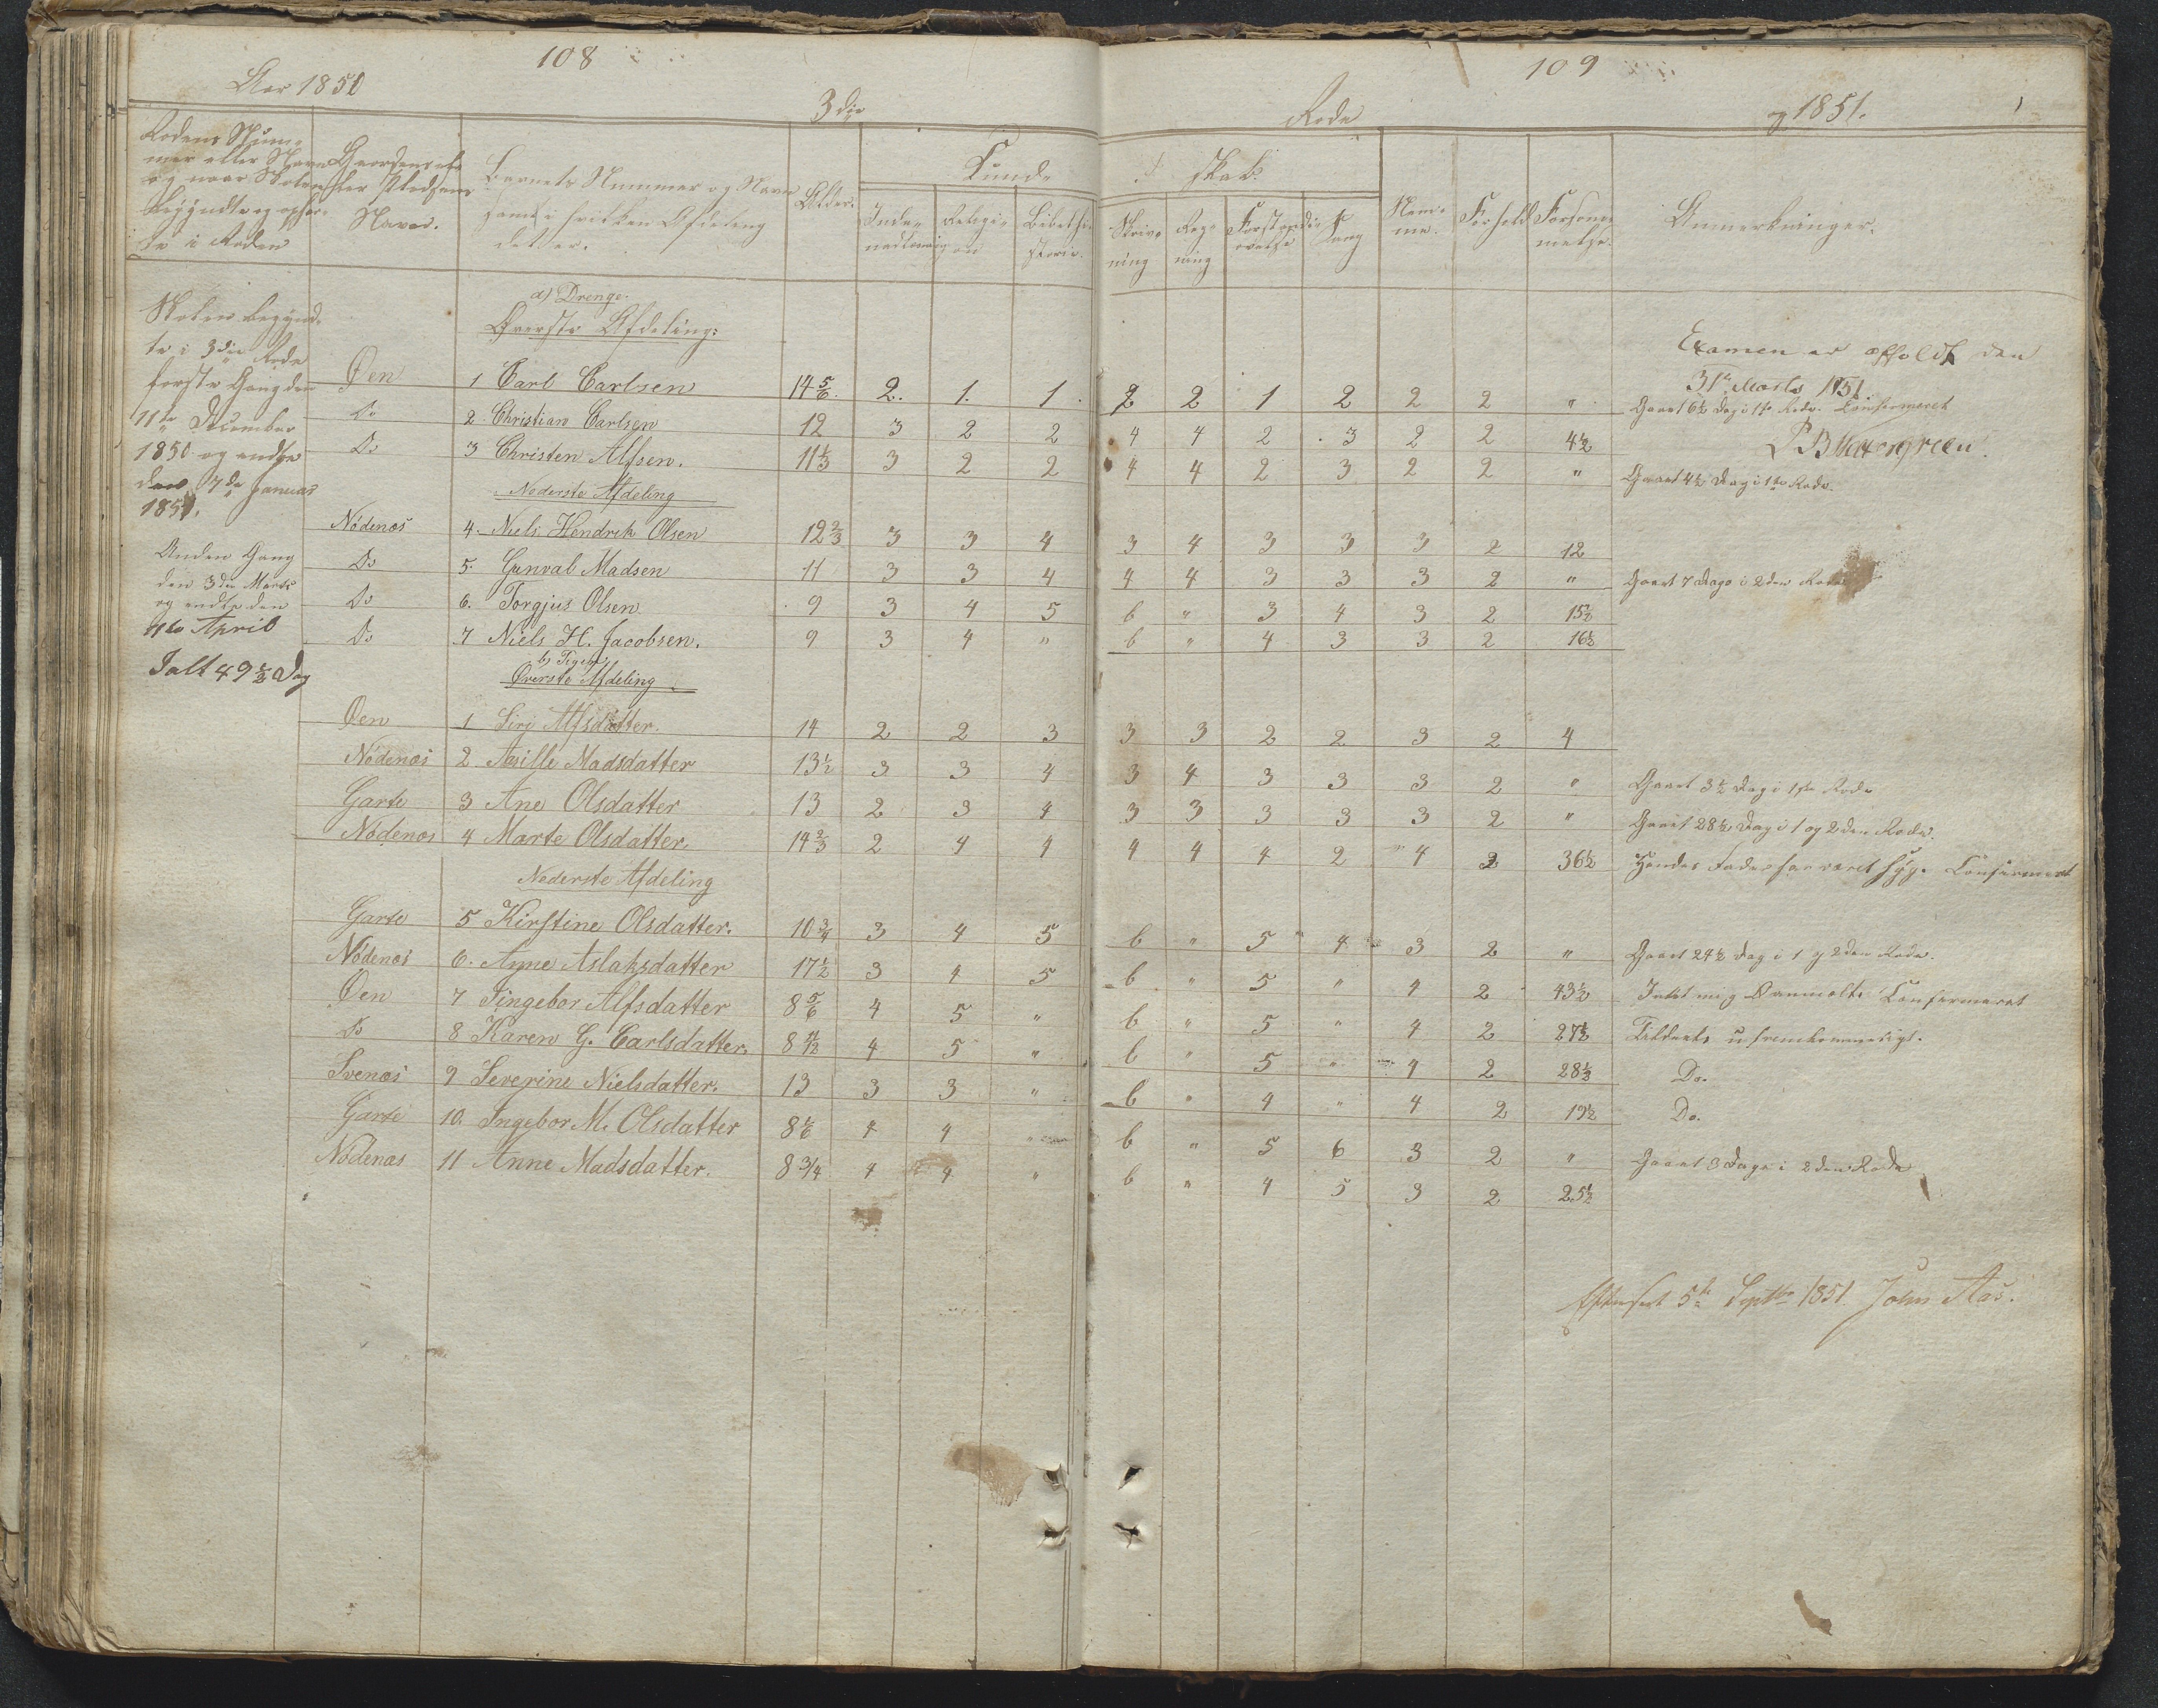 108
Aar 1850
3die
Rodens Num-
mer eller Navn
og naar Skolen
begyndte og ophør-
te i Roden
Gaardens el-
ler Pladsens
Navn.
Barnets Nummer og Navn
samt i hvilken Afdeling
det er.
Alder.
Kund-
Inden-
Religi-
on
Bibelhi-
storie.
a) Drenge.
Øverste Afdeling:
Skolen begynd-
te i 3die Rode
første Gang den
11te December
1850 og endte
den 7de Januar
1851.
Anden Gang
den 3die Marts
og endte den
4de April
Ialt 49 1/2 Dag
Øen 1 Carl Carlsen 14 5/6. 2. 1. 1.
Do 2. Christian Carlsen 12 3 2 2
Do 3 Christen Alfsen. 11 1/3 3 2 2
Nederste Afdeling
Nødenæs 4. Niels Hendrik Olsen 12 2/3 3 3 4
Do 5. Gunval Madsen 11 3 3 4
Do 6. Torgjus Olsen 9 3 4 5
Do 7 Niels H. Jacobsen. 9 3 4 "
b) Piger
Øverste Afdeling
Øen 1 Siri Alfsdatter. 14 2 2 3
Nødenæs 2. Aasille Madsdatter 13 1/2 3 3 4
Garte 3 Ane Olsdatter 13 2 3 4
Nødenæs 4 Marte Olsdatter. 14 2/3 2 4 4
Nederste Afdeling
Garte 5 Kirstine Olsdatter. 10 3/4 3 4 5
Nødenæs 6. Anne Aslaksdatter 17 1/2 3 4 5
Øen 7 Tingebor Alfsdatter 8 5/6 4 5 "
Do 8 Karen G. Carlsdatter. 8 4 5 "
Svenæs 9 Severine Nielsdatter. 13 3 3 "
Garte 10. Ingebor M. Olsdatter 8 1/6 4 4 "
Nødenæs 11 Anne Madsdatter. 8 3/4 4 4 "
109
Rode
og 1851.
skab
Skriv-
ning
Reg-
ning
Forstands-
øvelse
Sang
Nem-
me.
Forhold
Forsøm-
melse.
Anmerkninger.
Examen er afholdt den
31te Marts 1851.
2 2 1 2 2 2 " Gaaet 6 1/2 Dag i 1ste Rode. Confirmeret
4 4 2 3 2 2 4 1/2
4 4 2 3 2 2 " Gaaet 4 1/2 Dag i 1ste Rode.
3 4 3 3 3 2 12
4 4 3 3 3 2 " Gaaet 7 Dage i 2den Rode
6 " 3 4 3 2 15 1/2
6 " 4 3 3 2 16 1/2
3 3 2 2 3 2 4
3 4 3 3 3 2 " Gaaet 3 1/2 Dag i 1ste Rode
3 3 3 3 3 2 " Gaaet 28 1/2 Dag i 1 og 2den Rode.
4 4 4 2 4 2 36 1/2 Hendes Fader har været syg. Confirmeret
6 " 5 4 3 2 " Gaaet 24 1/2 Dag i 1 og 2den Rode.
6 " 5 " 4 2 43 1/2 Confirmeret
6 " 5 " 4 2 27 1/2 Tildeels ufremkommeligt.
6 " 5 " 4 2 28 1/2 Do.
6 " 4 " 4 2 19 1/2 Do.
6 " 5 6 3 2 " Gaaet 3 Dage i 2den Rode
6 " 4 5 3 2 25 1/2
Efterseet 5te Septbr 1851 John Aas.